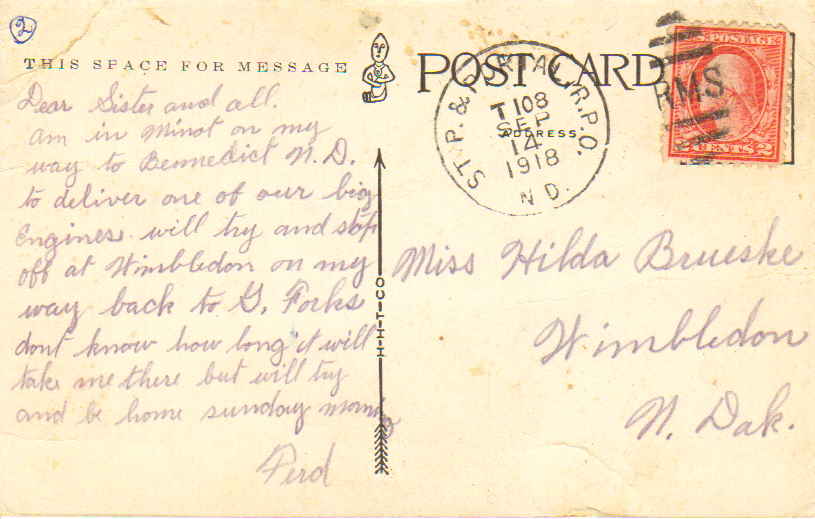 2
THIS SPACE FOR MESSAGE
Dear Sister and all.
am in Minot on my
way to Bennedict N.D.
to deliver one of our big
Engines. will try and stop
off at Wimbledon on my
way back to G. Forks
dont know how long it will
take me there but will try
and be home sunday morning
Ferd
H-H-T-CO
POST CARD
ADDRESS
ST.P. & PORTAL, R.P.O.
T 108
SEP
14
1918
N D.
RMS
U.S. POSTAGE
2 CENTS 2
Miss Hilda Brueske
Wimbledon
N. Dak.